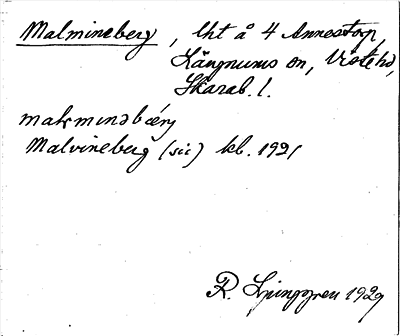 Malmineberg, lht å 4 Annestorp,
Längnums sn, Viste hd,
Skarab. l.
malmınəbærj
Malvineberg (sic) kb. 1921
R. Ljunggren 1929